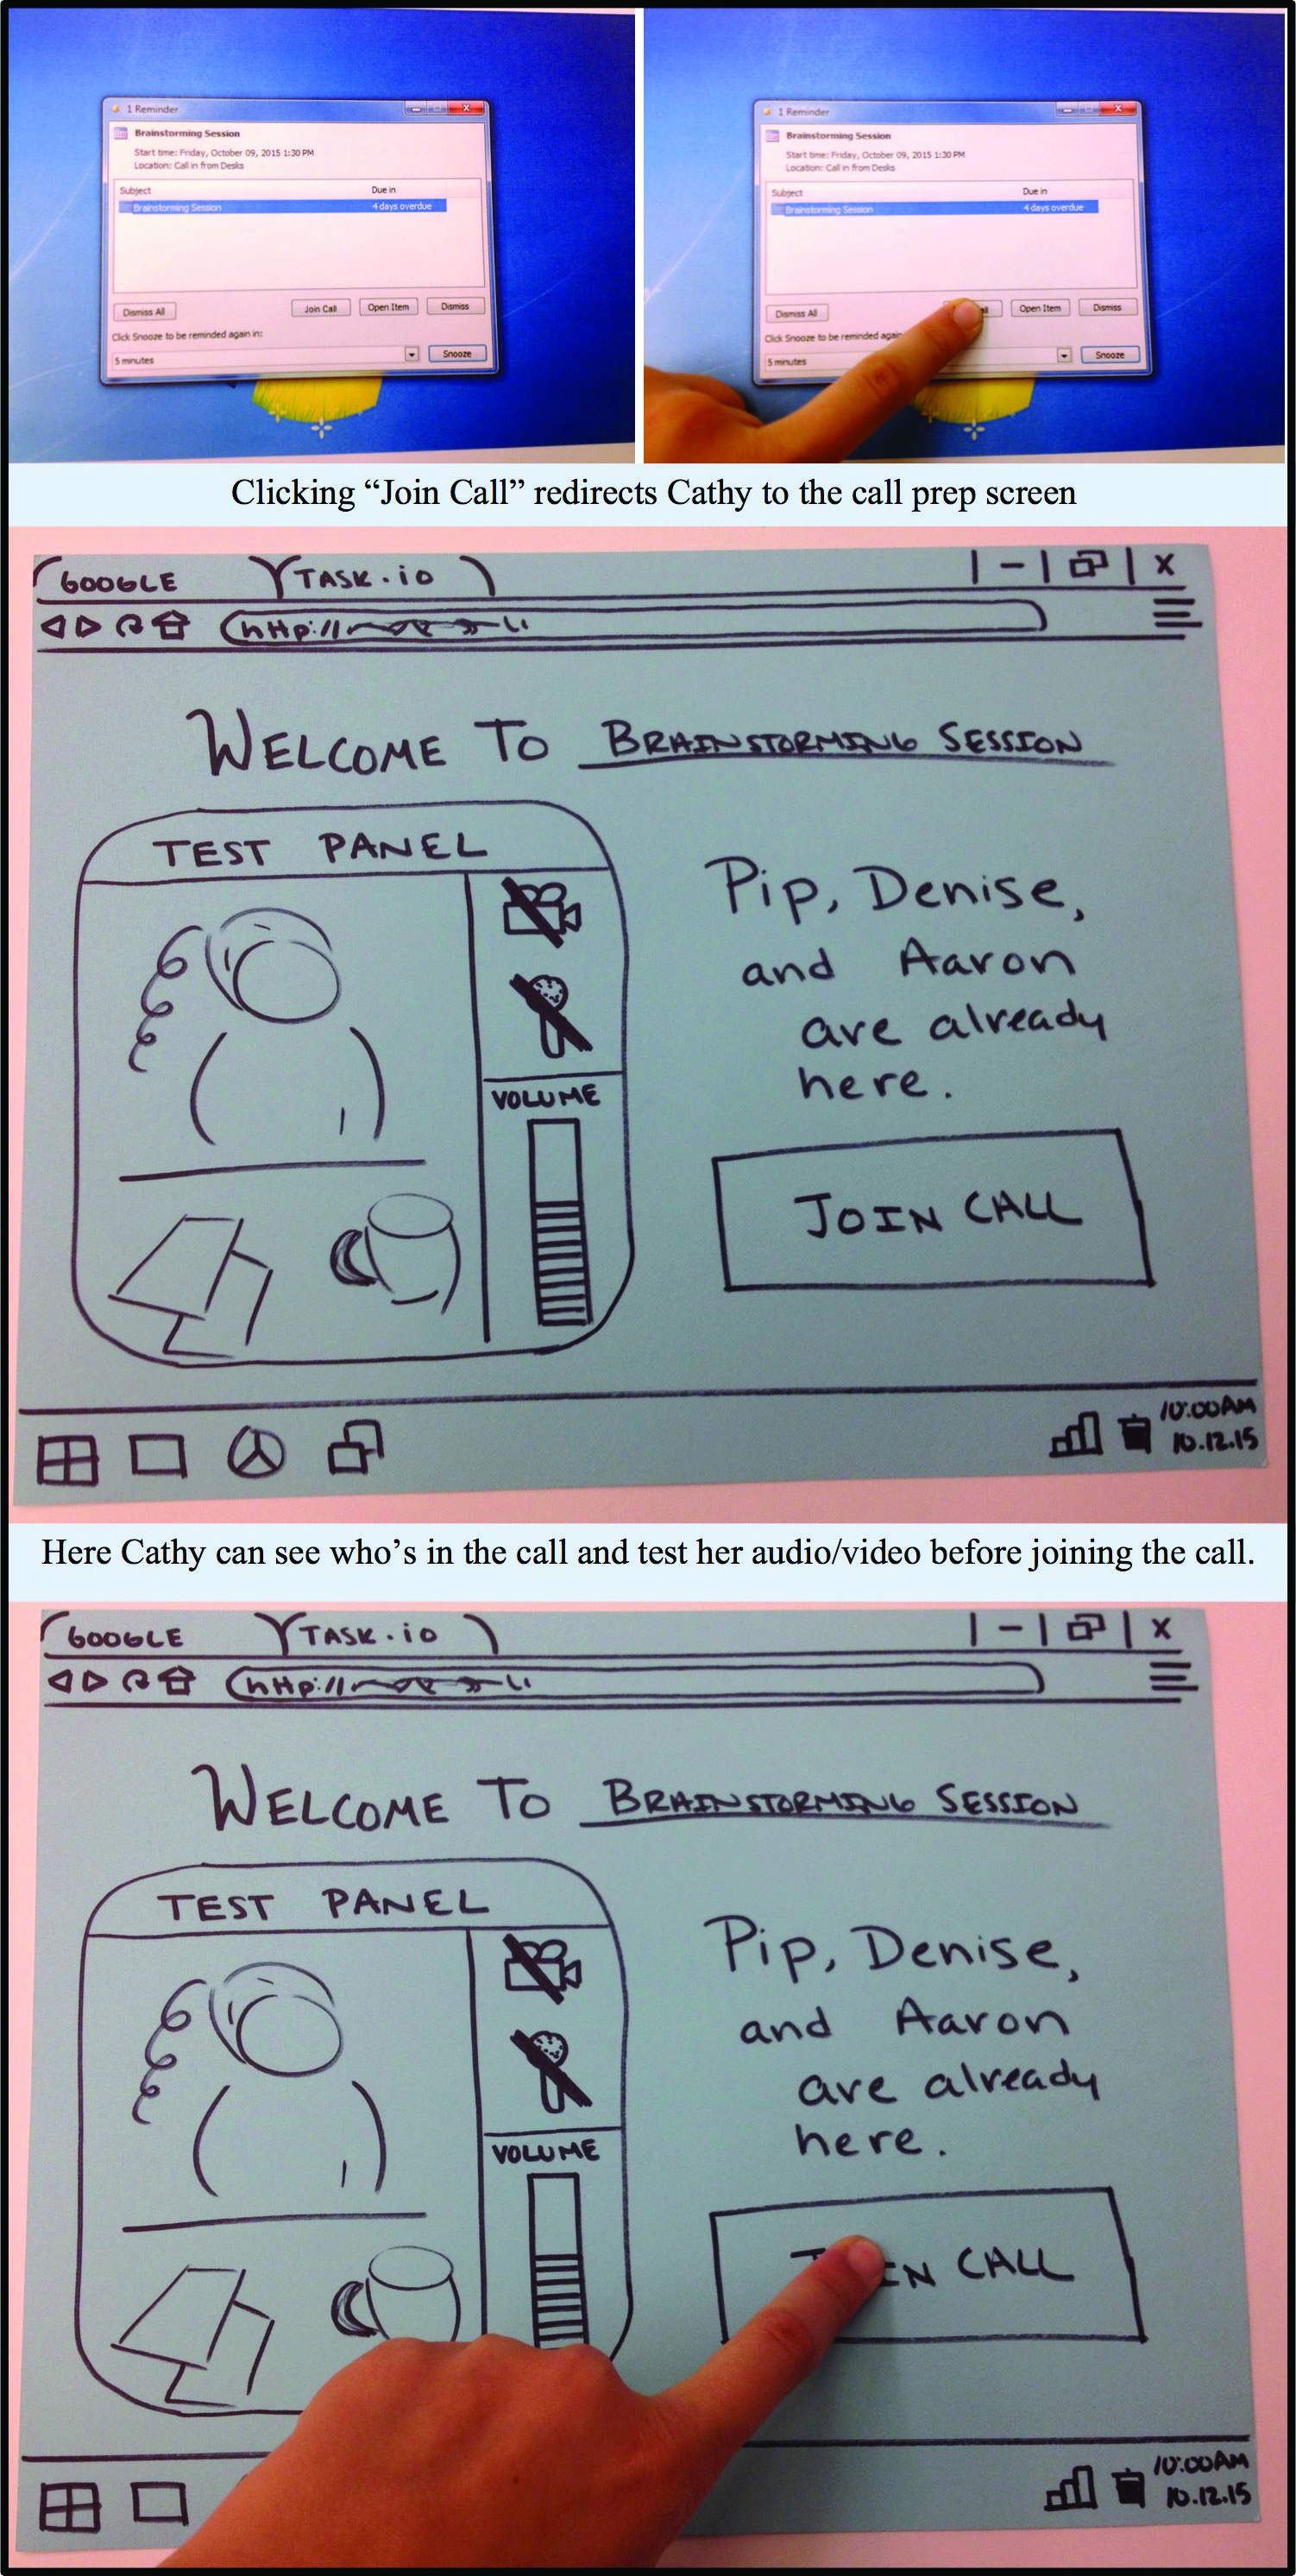 1 Reminder
Brainstorming Session
Start time: Friday, October 09, 2015 1:30 PM
Location: Call in from Desks
Subject Due in
Brainstorming Session 4 days overdue
Dismiss All Join Call Open Item Dismiss
Click Snooze to be reminded again in:
5 minutes Snooze
1 Reminder
Brainstorming Session
Start time: Friday, October 09, 2015 1:30 PM
Location: Call in from Desks
Subject Due in
Brainstorming Session 4 days overdue
Dismiss All Open Item Dismiss
Click Snooze to be reminded again
5 minutes Snooze
Clicking “Join Call” redirects Cathy to the call prep screen
GOOGLE TASK.io
http://
WELCOME TO BRAINSTORMING SESSION
TEST PANEL
VOLUME
Pip, Denise,
and Aaron
are already
here.
JOIN CALL
10:00AM
10.12.15
Here Cathy can see who’s in the call and test her audio/video before joining the call.
GOOGLE TASK.io
http://
WELCOME TO BRAINSTORMING SESSION
TEST PANEL
VOLUME
Pip, Denise,
and Aaron
are already
here.
JOIN CALL
10:00AM
10.12.15